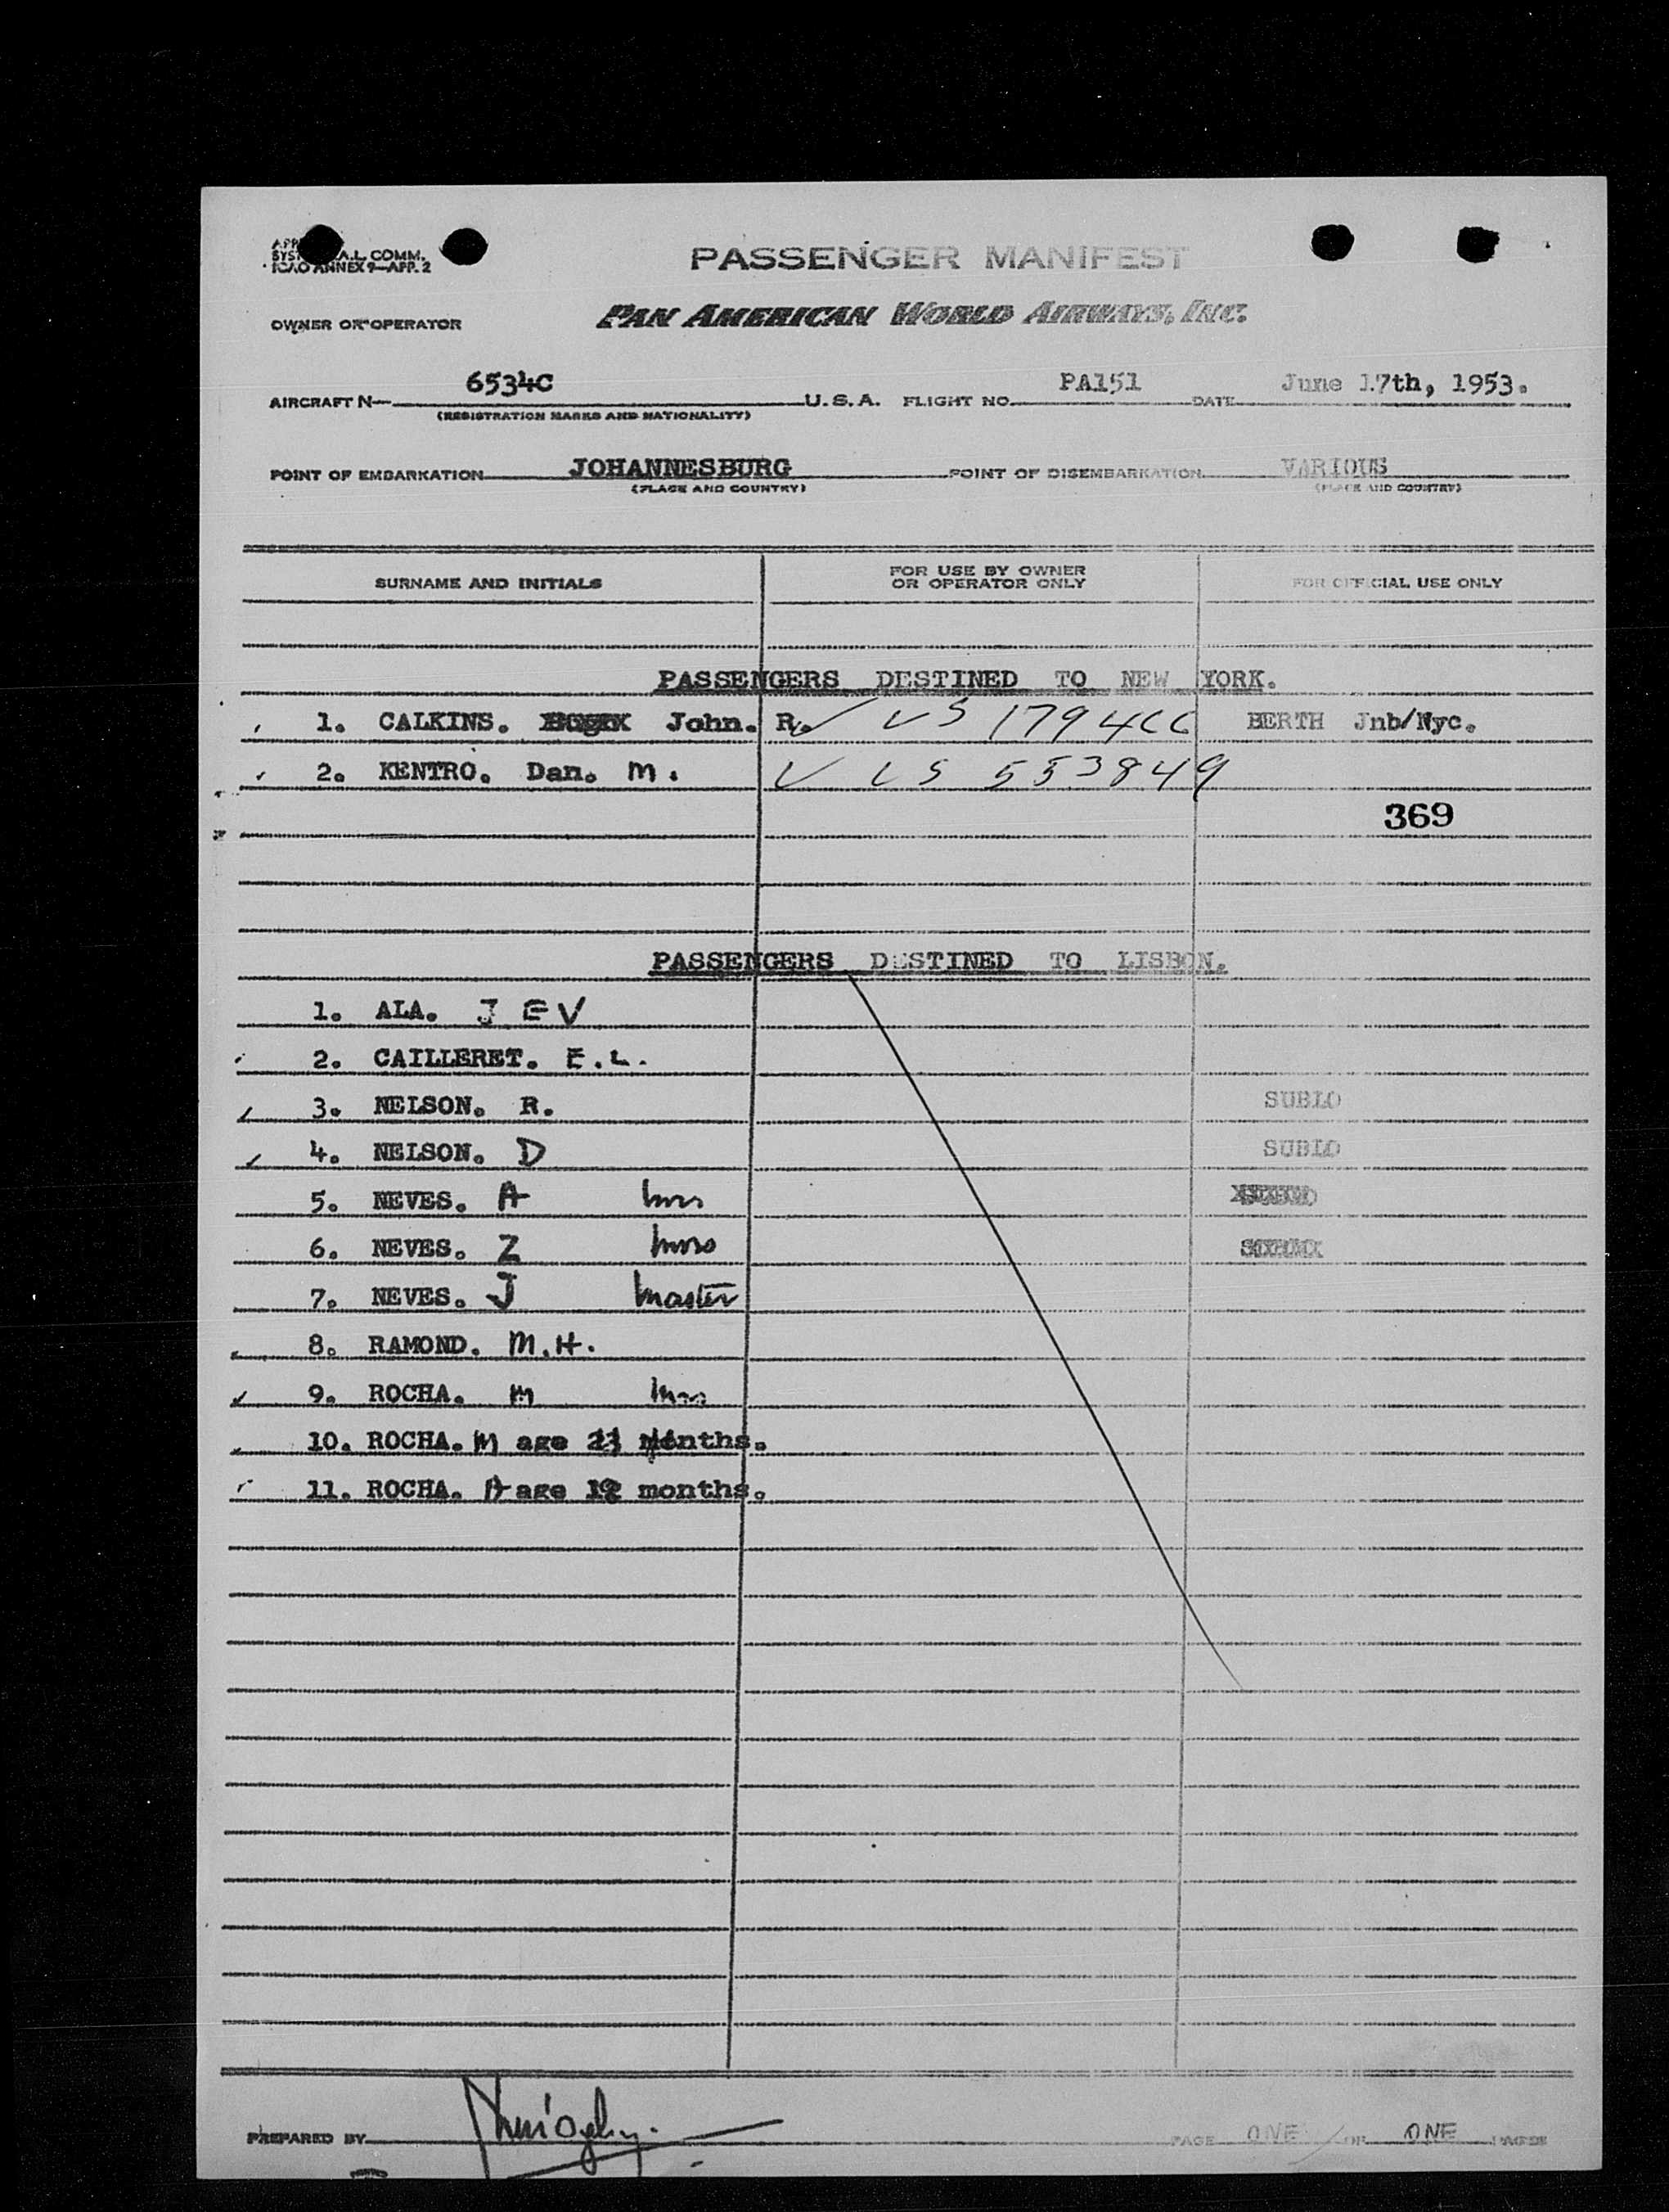 A.L. COMM.
ICAO ANNEX 9—APP. 2
PASSENGER MANIFEST
OWNER OR OPERATOR PAN AMERICAN WORLD AIRWAYS, INC.
AIRCRAFT N— 6534C U.S.A. FLIGHT NO. PA151 DATE June 17th, 1953.
(REGISTRATION MARKS AND NATIONALITY)
POINT OF EMBARKATION JOHANNESBURG POINT OF DISEMBARKATION VARIOUS
(PLACE AND COUNTRY) (PLACE AND COUNTRY)
SURNAME AND INITIALS FOR USE BY OWNER OR OPERATOR ONLY FOR OFFICIAL USE ONLY
PASSENGERS DESTINED TO NEW YORK.
1. CALKINS. John. R. ✓ US 179466 BERTH Jnb/Nyc.
2. KENTRO. Dan. M. ✓ US 553849
369
PASSENGERS DESTINED TO LISBON.
1. ALA. J E V
2. CAILLERET. E.L.
3. NELSON. R. SUBLO
4. NELSON. D SUBLO
5. NEVES. A
6. NEVES. Z
7. NEVES. J Master
8. RAMOND. M.H.
9. ROCHA. M Mrs
10. ROCHA. M age months.
11. ROCHA. A age months.
PREPARED BY PAGE ONE OF ONE PAGES